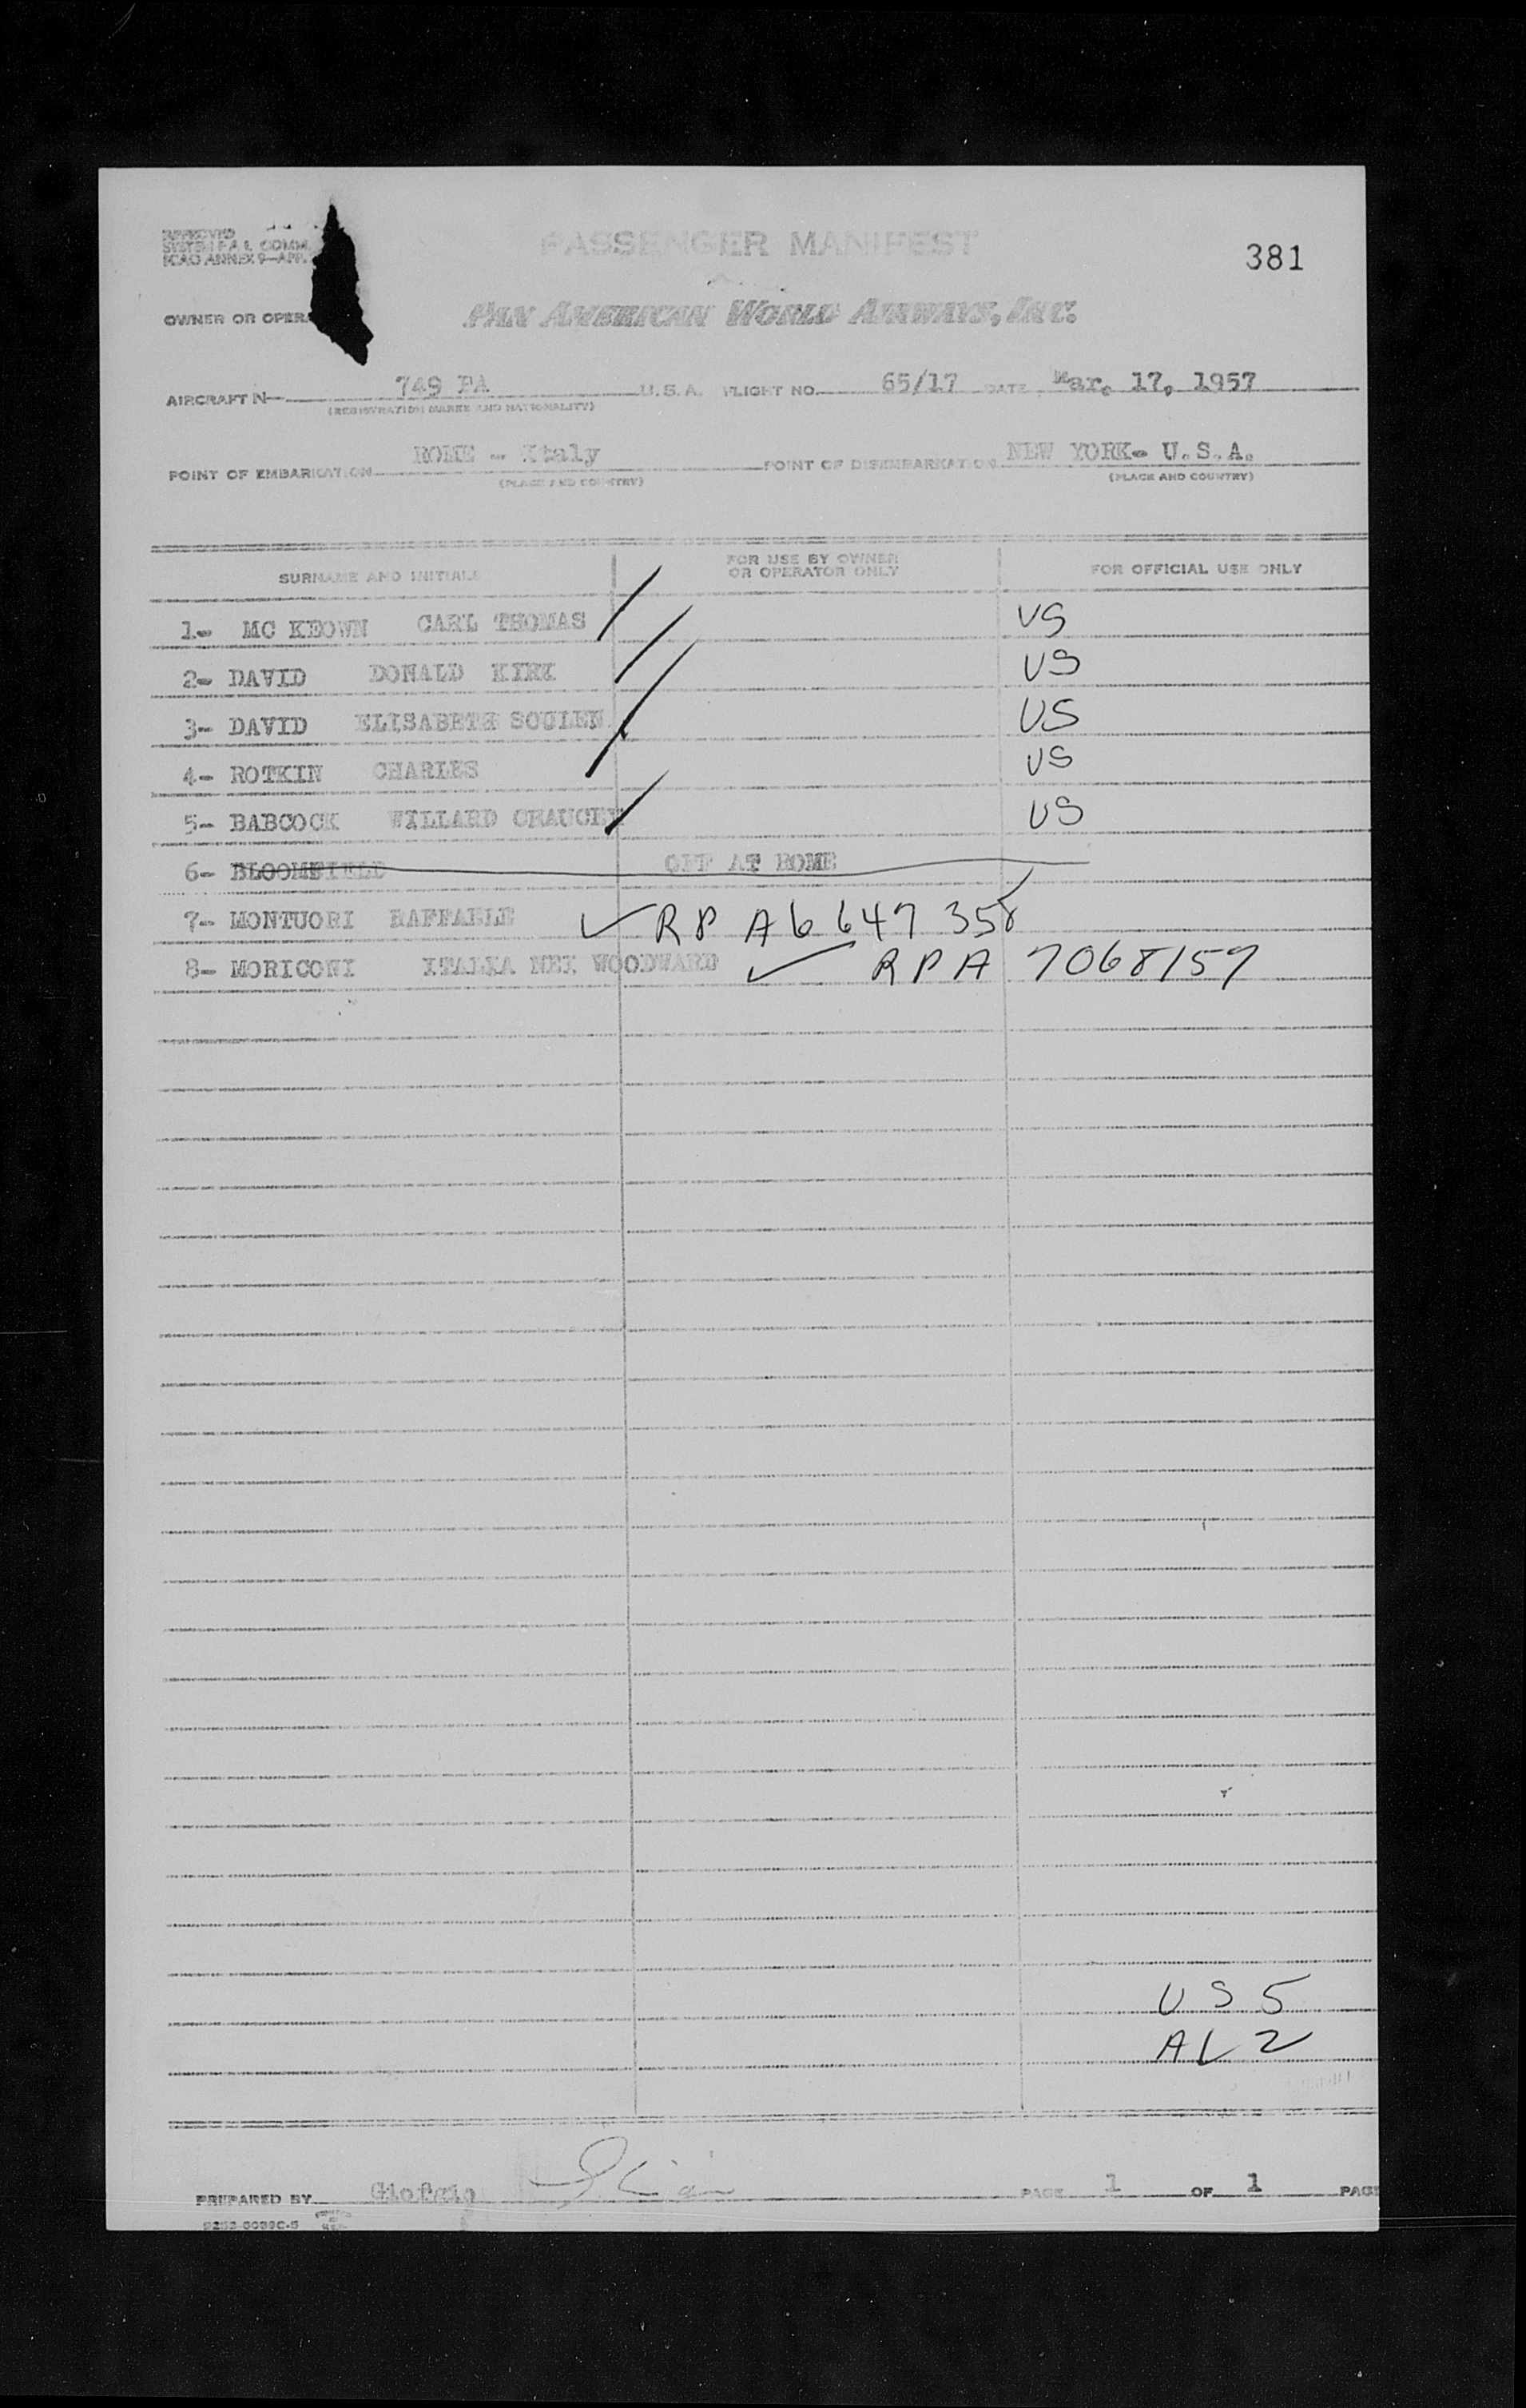 APPROVED
SYSTEM F.A.L. COMM.
ICAO ANNEX 9—APP.
PASSENGER MANIFEST
381
OWNER OR OPERA
PAN AMERICAN WORLD AIRWAYS, INC.
AIRCRAFT N 749 PA U.S.A. FLIGHT NO. 65/17 DATE Mar. 17, 1957
(REGISTRATION MARKS AND NATIONALITY)
POINT OF EMBARKATION ROME - Italy POINT OF DISEMBARKATION NEW YORK- U.S.A.
(PLACE AND COUNTRY) (PLACE AND COUNTRY)
SURNAME AND INITIALS FOR USE BY OWNER OR OPERATOR ONLY FOR OFFICIAL USE ONLY
1- MC KEOWN CARL THOMAS US
2- DAVID DONALD KIRK US
3- DAVID ELISABETH SOULEN US
4- ROTKIN CHARLES US
5- BABCOCK WILLARD CHAUCEY US
6- BLOOMFIELD OFF AT ROME
7- MONTUORI RAFFAELE ✓ RP A6 647 358
8- MORICONI ITALIA NEE WOODWARD ✓ RPA 7068159
US 5
AL 2
PREPARED BY Giorgio PAGE 1 OF 1 PAGE